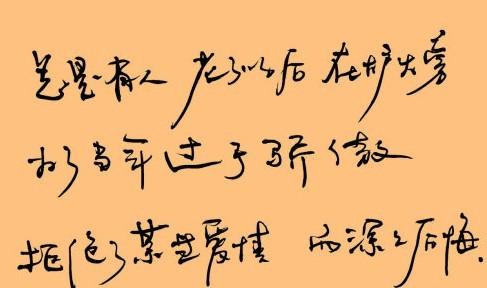 总是有人 老了以后 在炉火旁
为了当年过于骄傲
拒绝了某些爱情 而深深后悔.